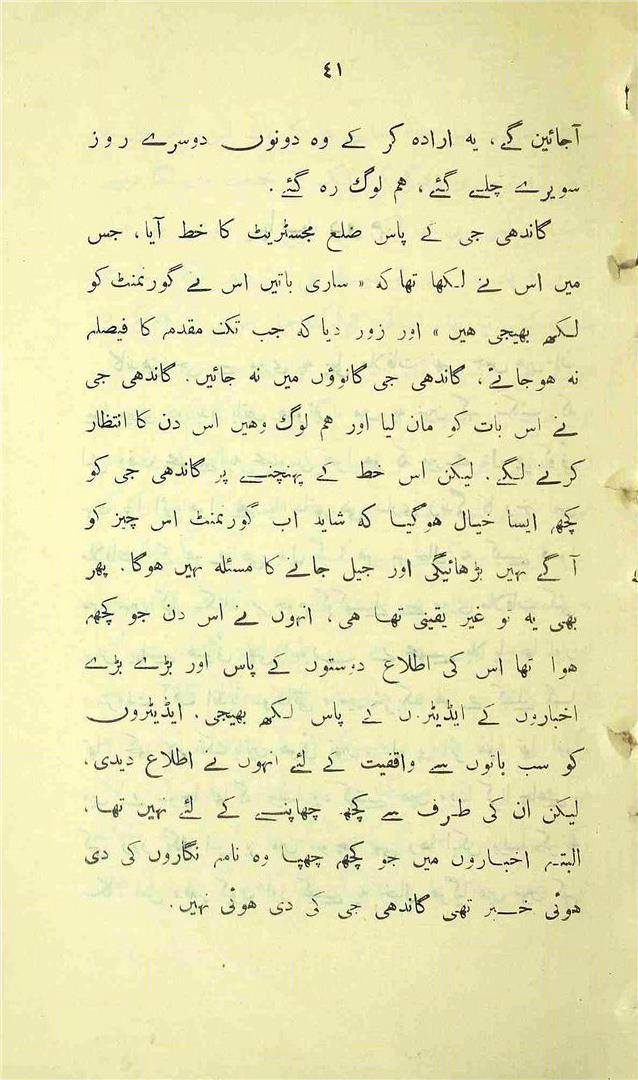 ٤١
آجائیں گے، یہ ارادہ کر کے وہ دونوں دوسرے روز
سویرے چلے گئے، ہم لوگ رہ گئے.
گاندھی جی کے پاس ضلع مجسٹریٹ کا خط آیا، جس
میں اس نے لکھا تھا کہ « ساری باتیں اس نے گورنمنٹ کو
لکھ بھیجی ہیں » اور زور دیا کہ جب تک مقدمہ کا فیصلہ
نہ ہو جائے، گاندھی جی گانوؤں میں نہ جائیں. گاندھی جی
نے اس بات کو مان لیا اور ہم لوگ وہیں اس دن کا انتظار
کرنے لگے. لیکن اس خط کے پہنچنے پر گاندھی جی کو
کچھ ایسا خیال ہوگیا کہ شاید اب گورنمنٹ اس چیز کو
آگے نہیں بڑھائیگی اور جیل جانے کا مسئلہ نہیں ہوگا. پھر
بھی یہ تو غیر یقینی تھا ہی، انہوں نے اس دن جو کچھ
ہوا تھا اس کی اطلاع دوستوں کے پاس اور بڑے بڑے
اخباروں کے ایڈیٹروں کے پاس لکھ بھیجی. ایڈیٹروں
کو سب باتوں سے واقفیت کے لئے انہوں نے اطلاع دیدی،
لیکن ان کی طرف سے کچھ چھاپنے کے لئے نہیں تھا،
البتہ اخباروں میں جو کچھ چھپا وہ نامہ نگاروں کی دی
ہوئی خبر تھی گاندھی جی کی دی ہوئی نہیں.